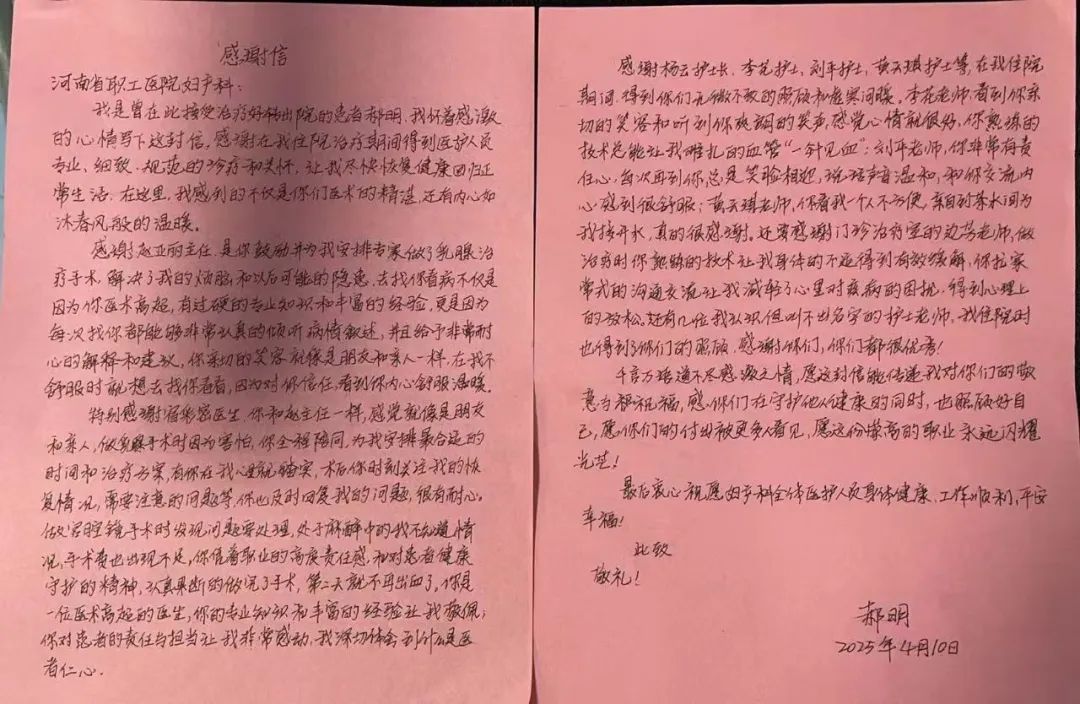 感谢信
河南省职工医院妇产科：
我是曾在此接受治疗好转出院的患者郝明，我怀着感激
的心情写下这封信，感谢在我住院治疗期间得到医护人员
专业、细致、规范的诊疗和关怀，让我尽快恢复健康回归正
常生活。在这里，我感到的不仅是你们医术的精湛，还有内心如
沐春风般的温暖。
感谢赵亚丽主任，是你鼓励并为我安排专家做了乳腺治
疗手术，解决了我的烦恼和以后可能的隐患，去找你看病不仅是
因为你医术高超，有过硬的专业知识和丰富的经验，更是因为
每次找你都能够非常认真的倾听病情叙述，并且给予非常耐
心的解释和建议，你亲切的笑容就像是朋友和亲人一样，在我不
舒服时就想去找你看看，因为对你信任，看到你内心舒服温暖。
特别感谢宿彩密医生，你和赵主任一样，感觉就像是朋友
和亲人，做乳腺手术时因为害怕，你全程陪同，为我安排最合适的
时间和治疗方案，有你在我心里就踏实，术后你时刻关注我的恢
复情况，需要注意的问题等，你也及时回复我的问题，很有耐心。
做宫腔镜手术时发现问题要处理，处于麻醉中的我不知道情
况，手术费也出现不足，你凭着职业的高度责任感，和对患者健康
守护的精神，认真果断的做完了手术，第二天就不再出血了，你是
一位医术高超的医生，你的专业知识和丰富的经验让我敬佩；
你对患者的责任与担当让我非常感动，我深切体会到什么是医
者仁心。
感谢杨云护士长、李花护士、刘平护士、黄天琪护士等，在我住院
期间，得到你们无微不致的照顾和嘘寒问暖。李花老师，看到你亲
切的笑容和听到你爽朗的笑声，感觉心情就很好，你熟练的
技术总能让我难扎的血管“一针见血”；刘平老师，你非常有责
任心，每次再到你，总是笑脸相迎，说话声音温和，和你交流内
心感到很舒服；黄天琪老师，你看我一个人不方便，亲自到茶水间为
我接开水，真的很感谢。还要感谢门诊治疗室的边芳老师，做
治疗时你熟练的技术让我身体的不适得到有效缓解，你拉家
常式的沟通交流让我减轻了心里对疾病的困扰，得到心理上
的放松。还有几位我认识但叫不出名字的护士老师，我住院时
也得到了你们的照顾，感谢你们，你们都很优秀！
千言万语道不尽感激之情，愿这封信能传递我对你们的敬
意与祝福，感你们在守护他人健康的同时，也照顾好自
己，愿你们的付出被更多人看见，愿这份崇高的职业永远闪耀
光芒！
最后衷心祝愿妇产科全体医护人员身体健康、工作顺利，平安
幸福！
此致
敬礼！
郝明
2025年4月10日